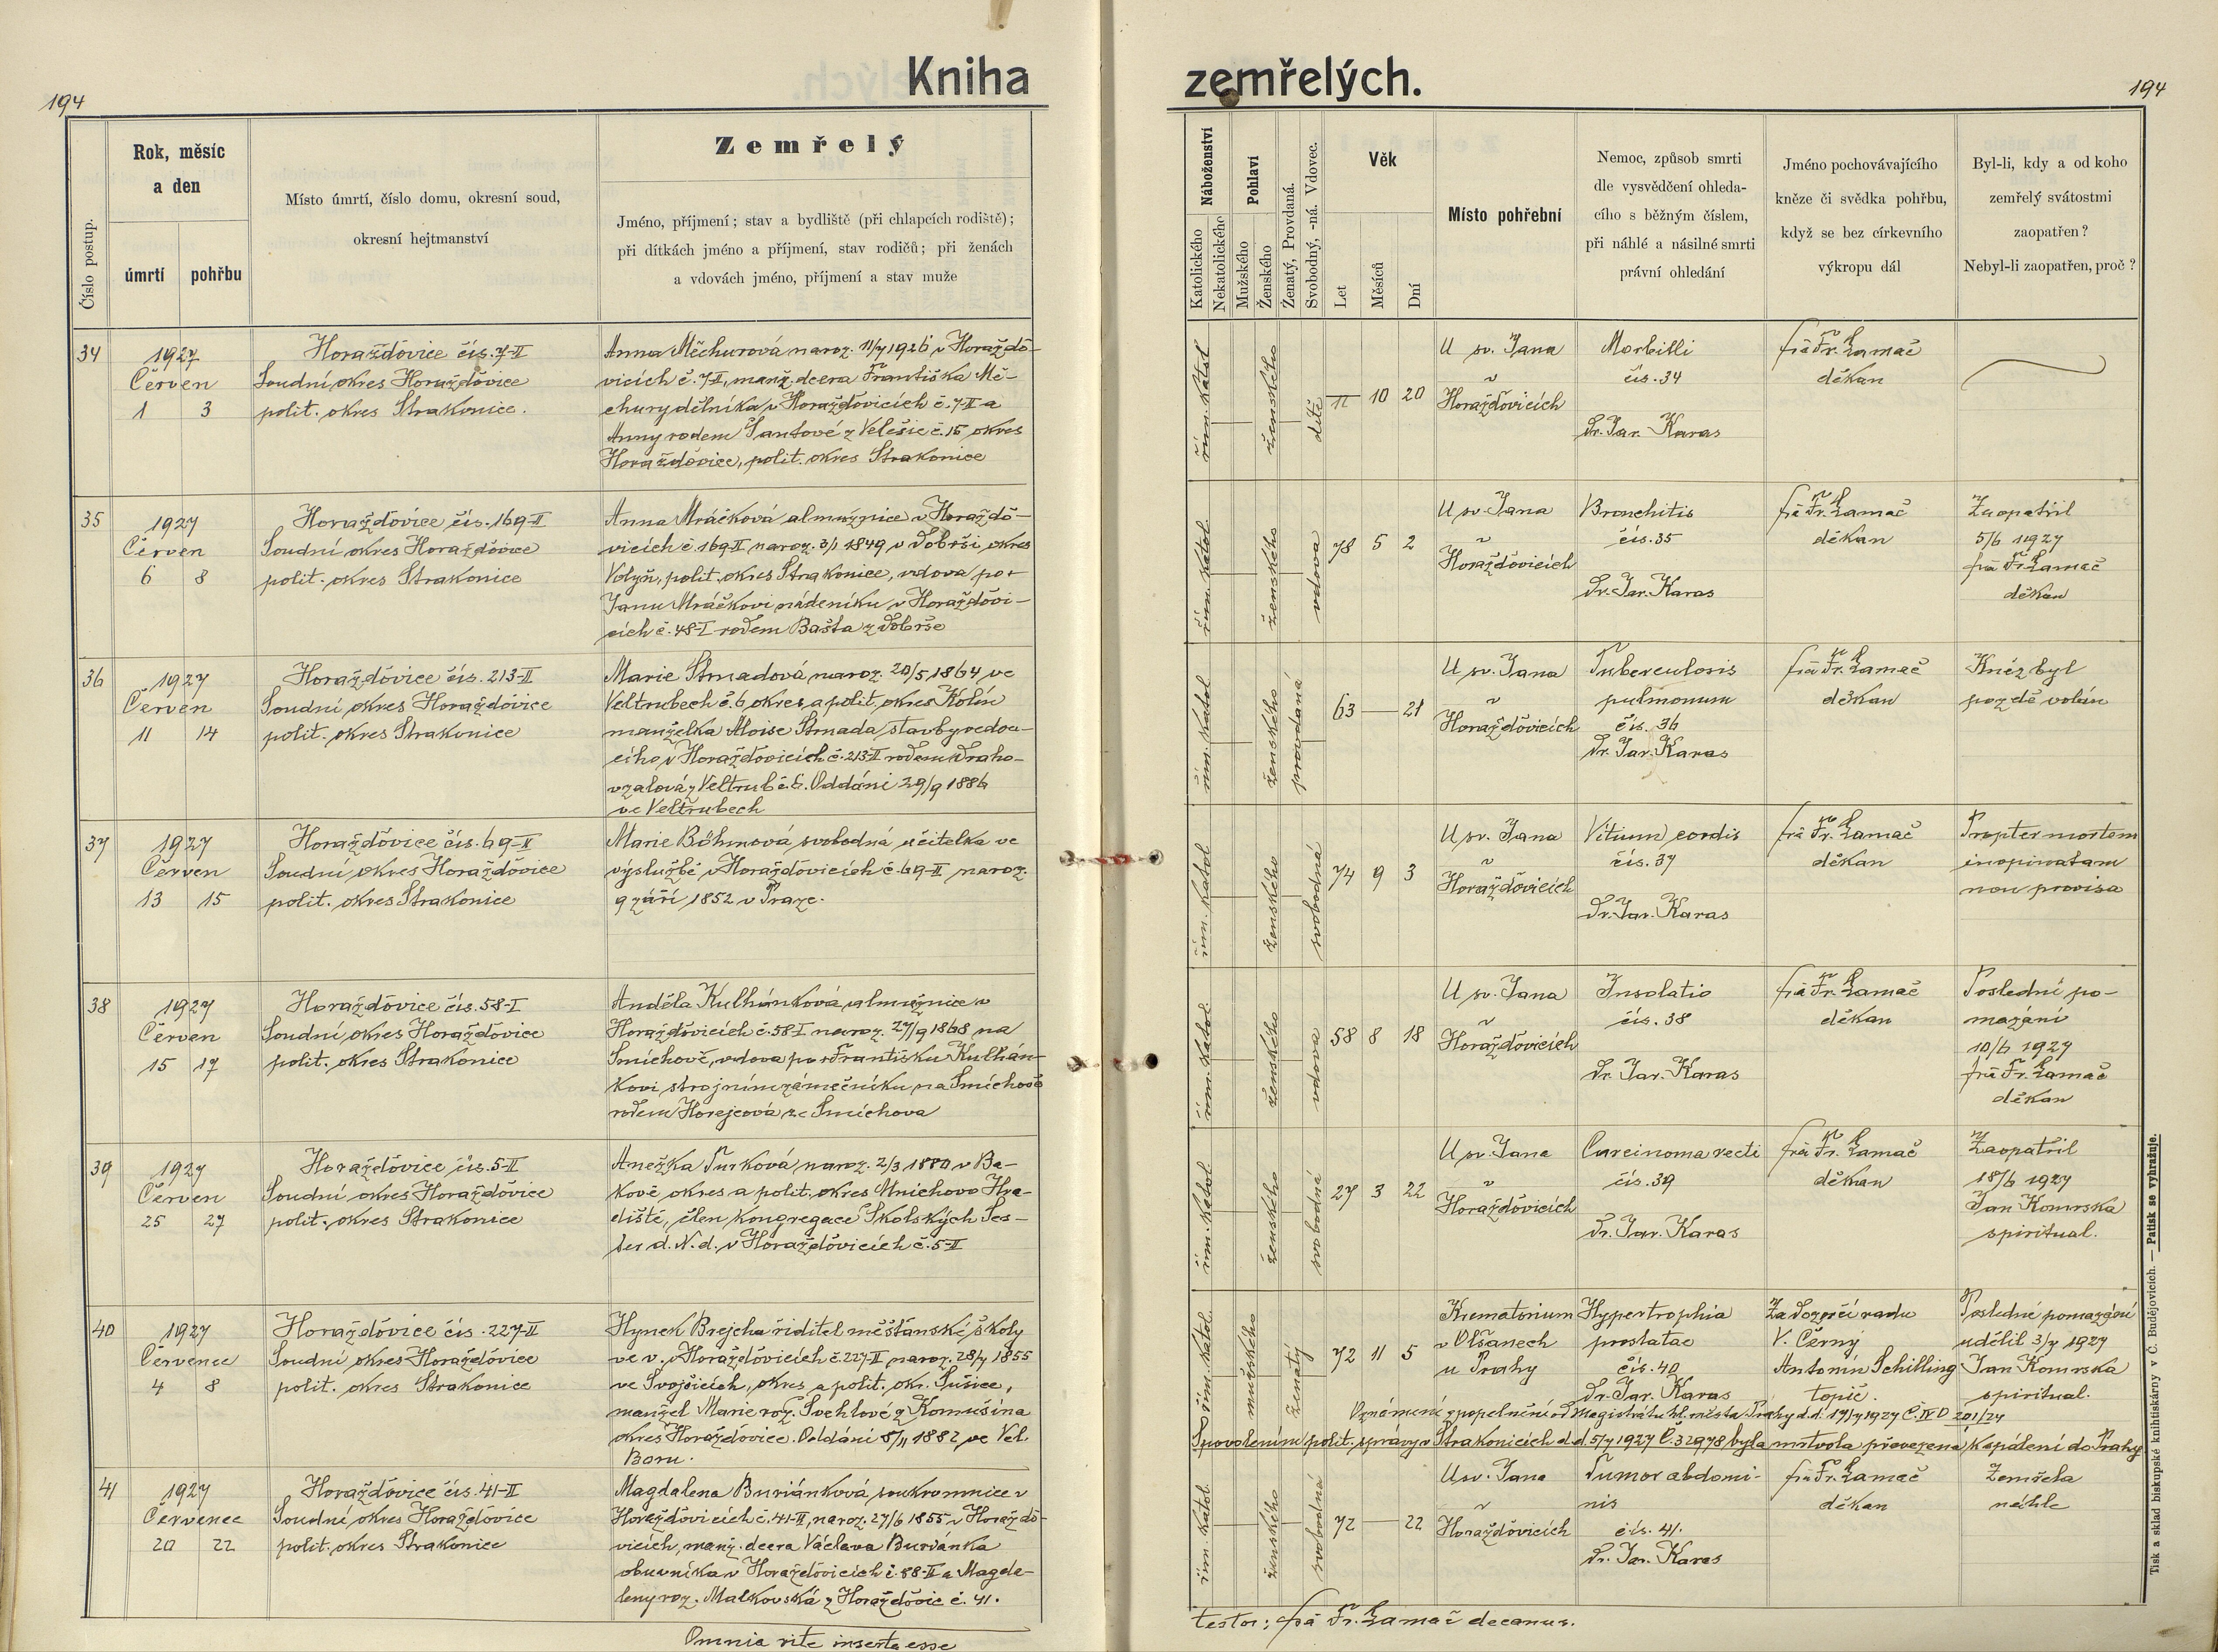 194
Kniha
Číslo postup.
Rok, měsíc
a den
úmrtí
pohřbu
Místo úmrtí, číslo domu, okresní soud,
okresní hejtmanství
Zemřelý
Jméno, příjmení; stav a bydliště (při chlapcích rodiště);
při dítkách jméno a příjmení, stav rodičů; při ženách
a vdovách jméno, příjmení a stav muže
34
1927
Červen
1 3
Horažďovice čís. 7-II
Soudní okres Horažďovice
polit. okres Strakonice.
Anna Měchurová naroz. 11/7 1926 v Horaždo-
vicích č. 7-II, manž. dcera Františka Mě-
chury dělníka v Horažďovicích č. 7-II a
Anny rodem Šantové z Velešic č. 15 okres
Horažďovice, polit. okres Strakonice
35
1927
Červen
6 8
Horažďovice čís. 169-II
Soudní okres Horažďovice
polit. okres Strakonice
Anna Mráčková almužnice v Horaždo-
vicích č. 169-II naroz. 3/1 1849 v Dobrši, okres
Volyň, polit. okres Strakonice, vdova po +
Janu Mráčkovi nádeníku v Horažďovi-
cích č. 48-I rodem Bašta z Dobrše
36
1927
Červen
11 14
Horažďovice čís. 213-II
Soudní okres Horažďovice
polit. okres Strakonice
Marie Strnadová naroz. 20/5 1864 ve
Veltrubech č. 6 okres a polit. okres Kolín
manželka Aloise Strnada stavbyvedou-
cího v Horažďovicích č. 213-II rodem Draho-
vzalová z Veltrub č. 6. Oddáni 29/9 1886
ve Veltrubech
37
1927
Červen
13 15
Horažďovice čís. 69-II
Soudní okres Horažďovice
polit. okres Strakonice
Marie Böhmová svobodná učitelka ve
výslužbě v Horažďovicích č. 69-II naroz.
9 září 1852 v Praze.
38
1927
Červen
15 17
Horažďovice čís. 58-I
Soudní okres Horažďovice
polit. okres Strakonice
Anděla Kulhánková almužnice v
Horažďovicích č. 58-I naroz. 27/9 1868 na
Smíchově, vdova po + Františku Kulhán-
kovi strojním zámečníku na Smíchově
rodem Horejcová ze Smíchova
39
1927
Červen
25 27
Horažďovice čís. 5-II
Soudní okres Horažďovice
polit. okres Strakonice
Anežka Turková, naroz. 2/3 1880 v Ba-
kově okres a polit. okres Mnichovo Hra-
diště, člen kongregace Školských Ses-
ter d. N. d. v Horažďovicích č. 5-II
40
1927
Červenec
4 8
Horažďovice čís. 227-II
Soudní okres Horažďovice
polit. okres Strakonice
Hynek Brejcha řiditel měšťanské školy
ve v. v Horažďovicích č. 227-II naroz. 28/7 1855
ve Svojšicích, okres a polit. okr. Sušice,
manžel Marie roz. Švehlové z Komušína
okres Horažďovice. Oddáni 5/11 1882 ve Vel.
Boru.
41
1927
Červenec
20 22
Horažďovice čís. 41-II
Soudní okres Horažďovice
polit. okres Strakonice
Magdalena Buriánková soukromnice v
Horažďovicích č. 41-II, naroz. 27/6 1855 v Horaždo-
vicích, manž. dcera Václava Buriánka
obuvníka v Horažďovicích č. 88-II a Magda-
leny roz. Malkovská z Horažďovic č. 41.
Omnia rite inserta esse
zemřelých.
194
Náboženství
Katolického
Nekatolického
Pohlaví
Mužského
Ženského
Ženatý, Provdaná.
Svobodný, -ná. Vdovec.
Věk
Let
Měsíců
Dní
Místo pohřební
Nemoc, způsob smrti
dle vysvědčení ohleda-
cího s běžným číslem,
při náhlé a násilné smrti
právní ohledání
Jméno pochovávajícího
kněze či svědka pohřbu,
když se bez církevního
výkropu dál
Byl-li, kdy a od koho
zemřelý svátostmi
zaopatřen?
Nebyl-li zaopatřen, proč?
řím. katol
ženského
dítě
10 20
U sv. Jana
v
Horažďovicích
Morbilli
čís. 34
Dr. Jar. Karas
frá Fr. Lamač
děkan
řím. katol.
ženského
vdova
78 5 2
U sv. Jana
v
Horažďovicích
Bronchitis
čís. 35
Dr. Jar. Karas
frá Fr. Lamač
děkan
Zaopatřil
5/6 1927
frá Fr. Lamač
děkan
řím. katol
ženského
provdaná
63 — 21
U sv. Jana
v
Horažďovicích
Tuberculosis
pulmonum
čís. 36
Dr. Jar. Karas
frá Fr. Lamač
děkan
Kněz byl
pozdě volán
řím. katol
ženského
svobodná
74 9 3
U sv. Jana
v
Horažďovicích
Vitium cordis
čís. 37
Dr. Jar. Karas
frá Fr. Lamač
děkan
Propter mortem
inopinatam
non provisa
řím. katol.
ženského
vdova
58 8 18
U sv. Jana
v
Horažďovicích
Insolatio
čís. 38
Dr. Jar. Karas
frá Fr. Lamač
děkan
Poslední po-
mazání
10/6 1927
frá Fr. Lamač
děkan
řím. katol
ženského
svobodná
27 3 22
U sv. Jana
v
Horažďovicích
Carcinoma recti
čís. 39
Dr. Jar. Karas
frá Fr. Lamač
děkan
Zaopatřil
18/6 1927
Jan Komrska
spiritual.
řím. katol.
mužského
ženatý
72 11 5
Krematorium
v Olšanech
u Prahy
Hypertrophia
prostatae
čís. 40
Dr. Jar. Karas
Za dozorčí radu
V. Černý
Antonín Schilling
topič.
Posledné pomazání
udělil 3/7 1927
Jan Komrska
spiritual.
Oznámení zpopelnění od Magistrátu hl. města Prahy d.d. 19/7 1927 Č. IV D 201/27
S povolením polit. správy v Strakonicích d.d. 5/7 1927 Č. 32978 byla mrtvola převezena k spálení do Prahy
řím. katol
ženského
svobodná
72 — 22
U sv. Jana
v
Horažďovicích
Tumor abdomi-
nis
čís. 41.
Dr. Jar. Karas
frá Fr. Lamač
děkan
Zemřela
náhle
testor: frá Fr. Lamač decanus.
Tisk a sklad biskupské knihtiskárny v Č. Budějovicích. — Patisk se vyhražuje.